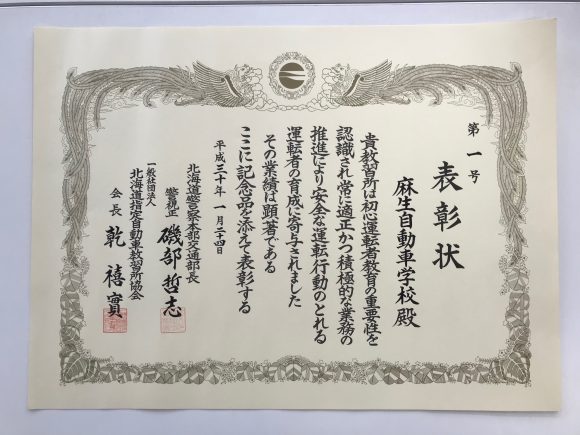 第一号
表彰状
麻生自動車学校殿
貴教習所は初心運転者教育の重要性を
認識され常に適正かつ積極的な業務の
推進により安全な運転行動のとれる
運転者の育成に寄与されました
その業績は顕著である
ここに記念品を添えて表彰する
平成三十年一月二十四日
北海道警察本部交通部長
警視正 磯部哲志
一般社団法人
北海道指定自動車教習所協会
会長 乾禧實